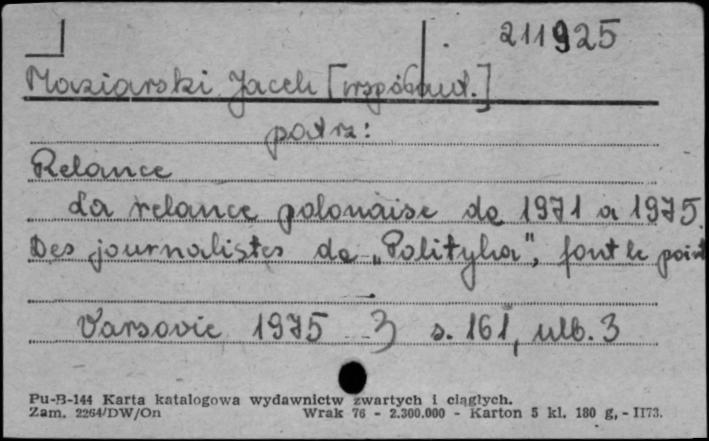 211925
Maziarski Jacek [współaut.]
patrz:
Relance
La relance polonaise de 1971 a 1975.
Des journalistes de „Polityka”, font le point
Varsovie 1975 s. 161, ulb. 3
Pu-B-144 Karta katalogowa wydawnictw zwartych i ciągłych.
Zam. 2264/DW/On Wrak 76 - 2.300.000 - Karton 5 kl. 180 g, - II73.